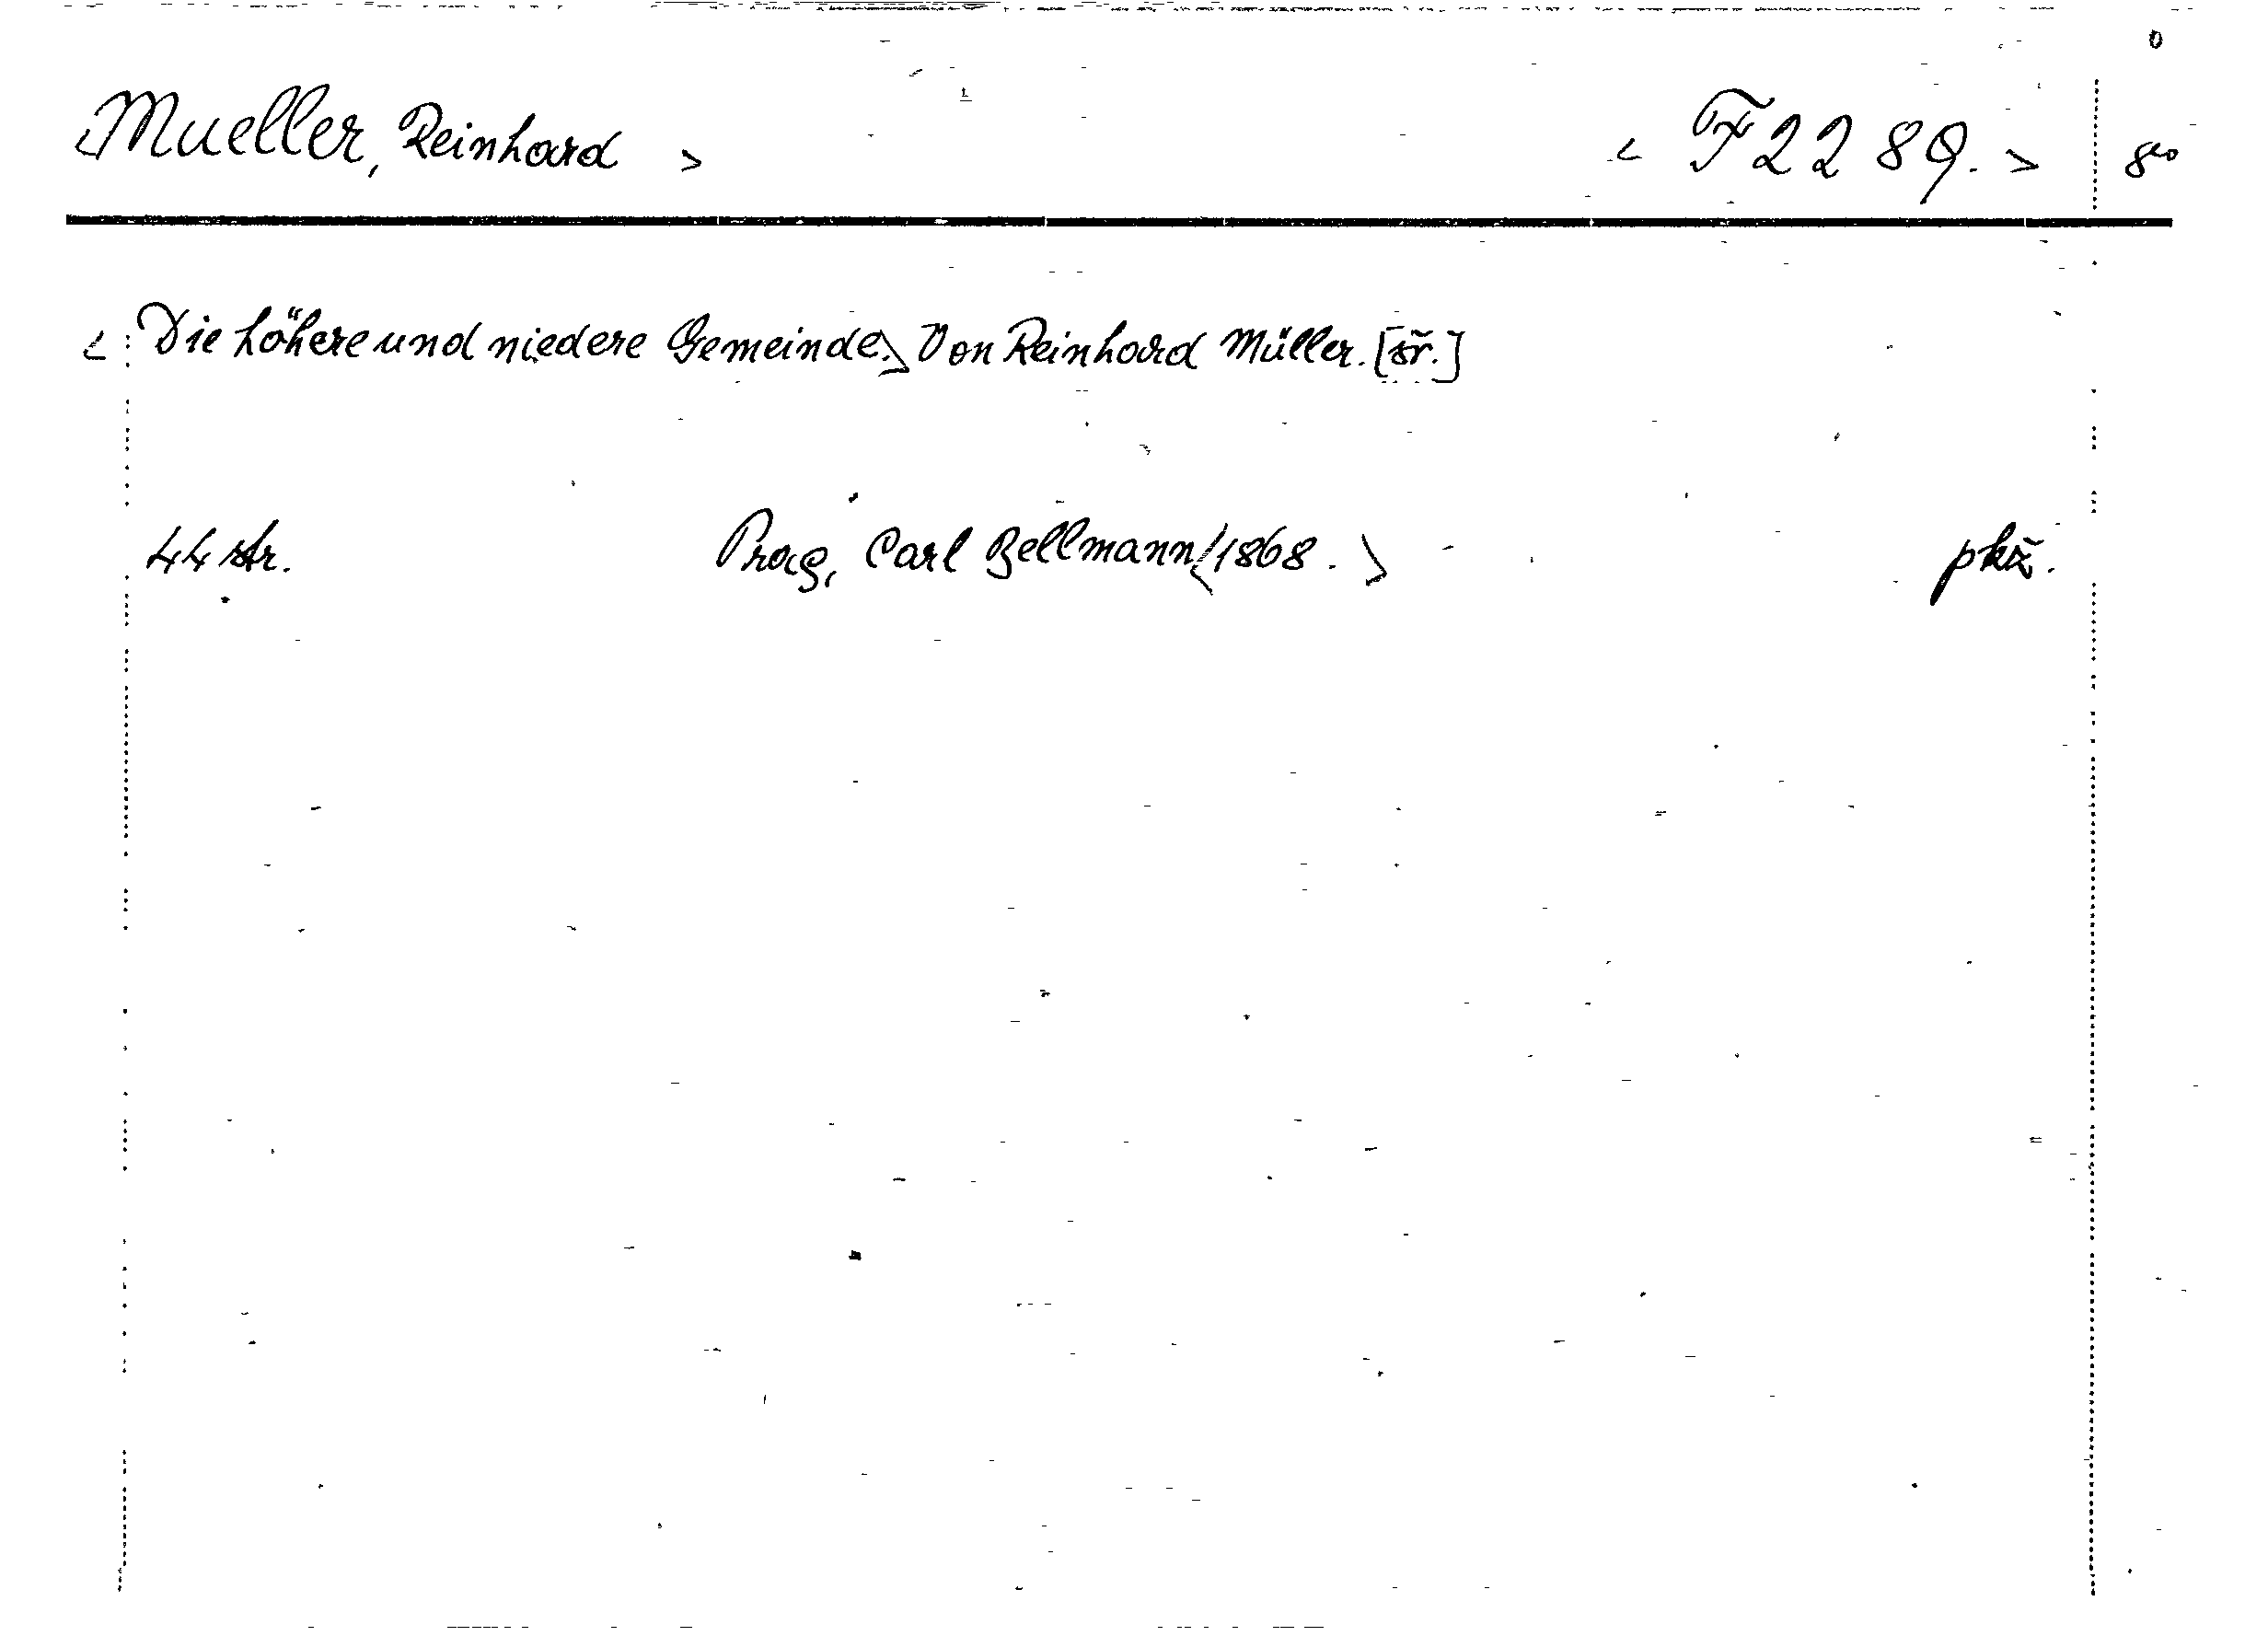 Mueller, Reinhard > < F 2289. > 8vo
< Die höhere und niedere Gemeinde. > Von Reinhard Müller. [šř.]
44 str. Prag, Carl Bellmann < 1868. > pkž.